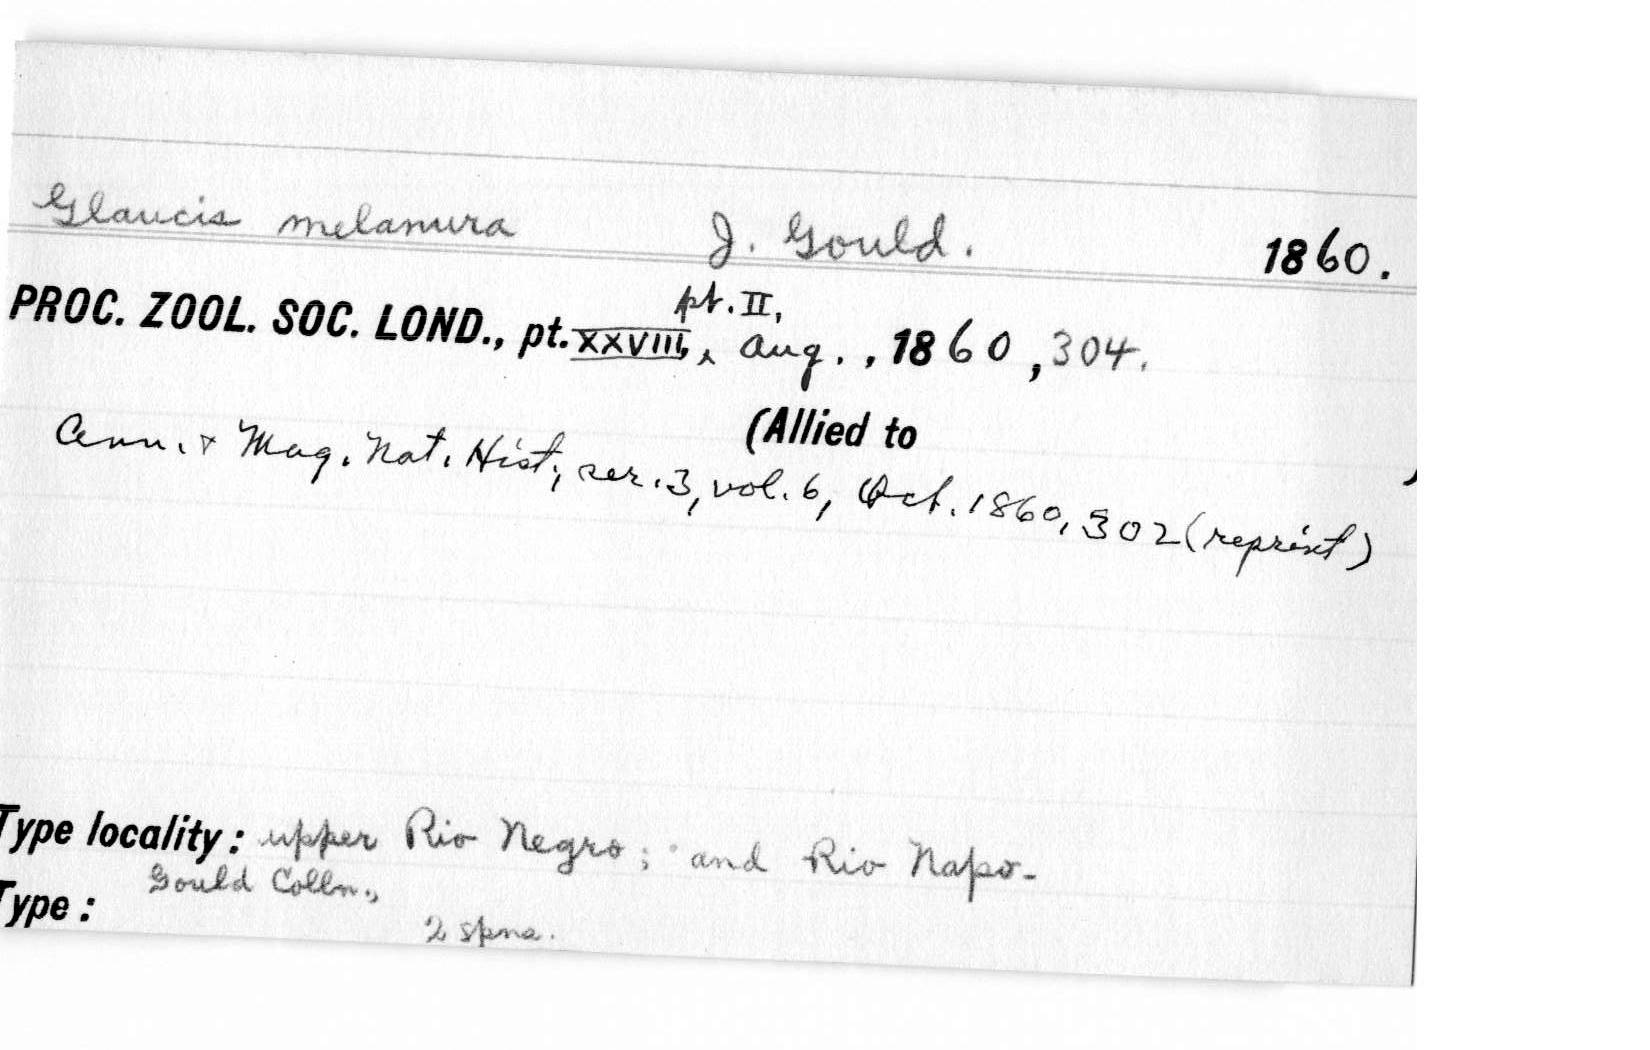 Glaucis melanura J. Gould. 1860.
pt. II,
PROC. ZOOL. SOC. LOND., pt. XXVIII, ‸ Aug., 1860, 304.
(Allied to )
Ann. & Mag. Nat. Hist., ser. 3, vol. 6, Oct. 1860, 302 (reprint)
Type locality: upper Rio Negro; and Rio Napo.
Gould Colln.,
Type:
2 spns.